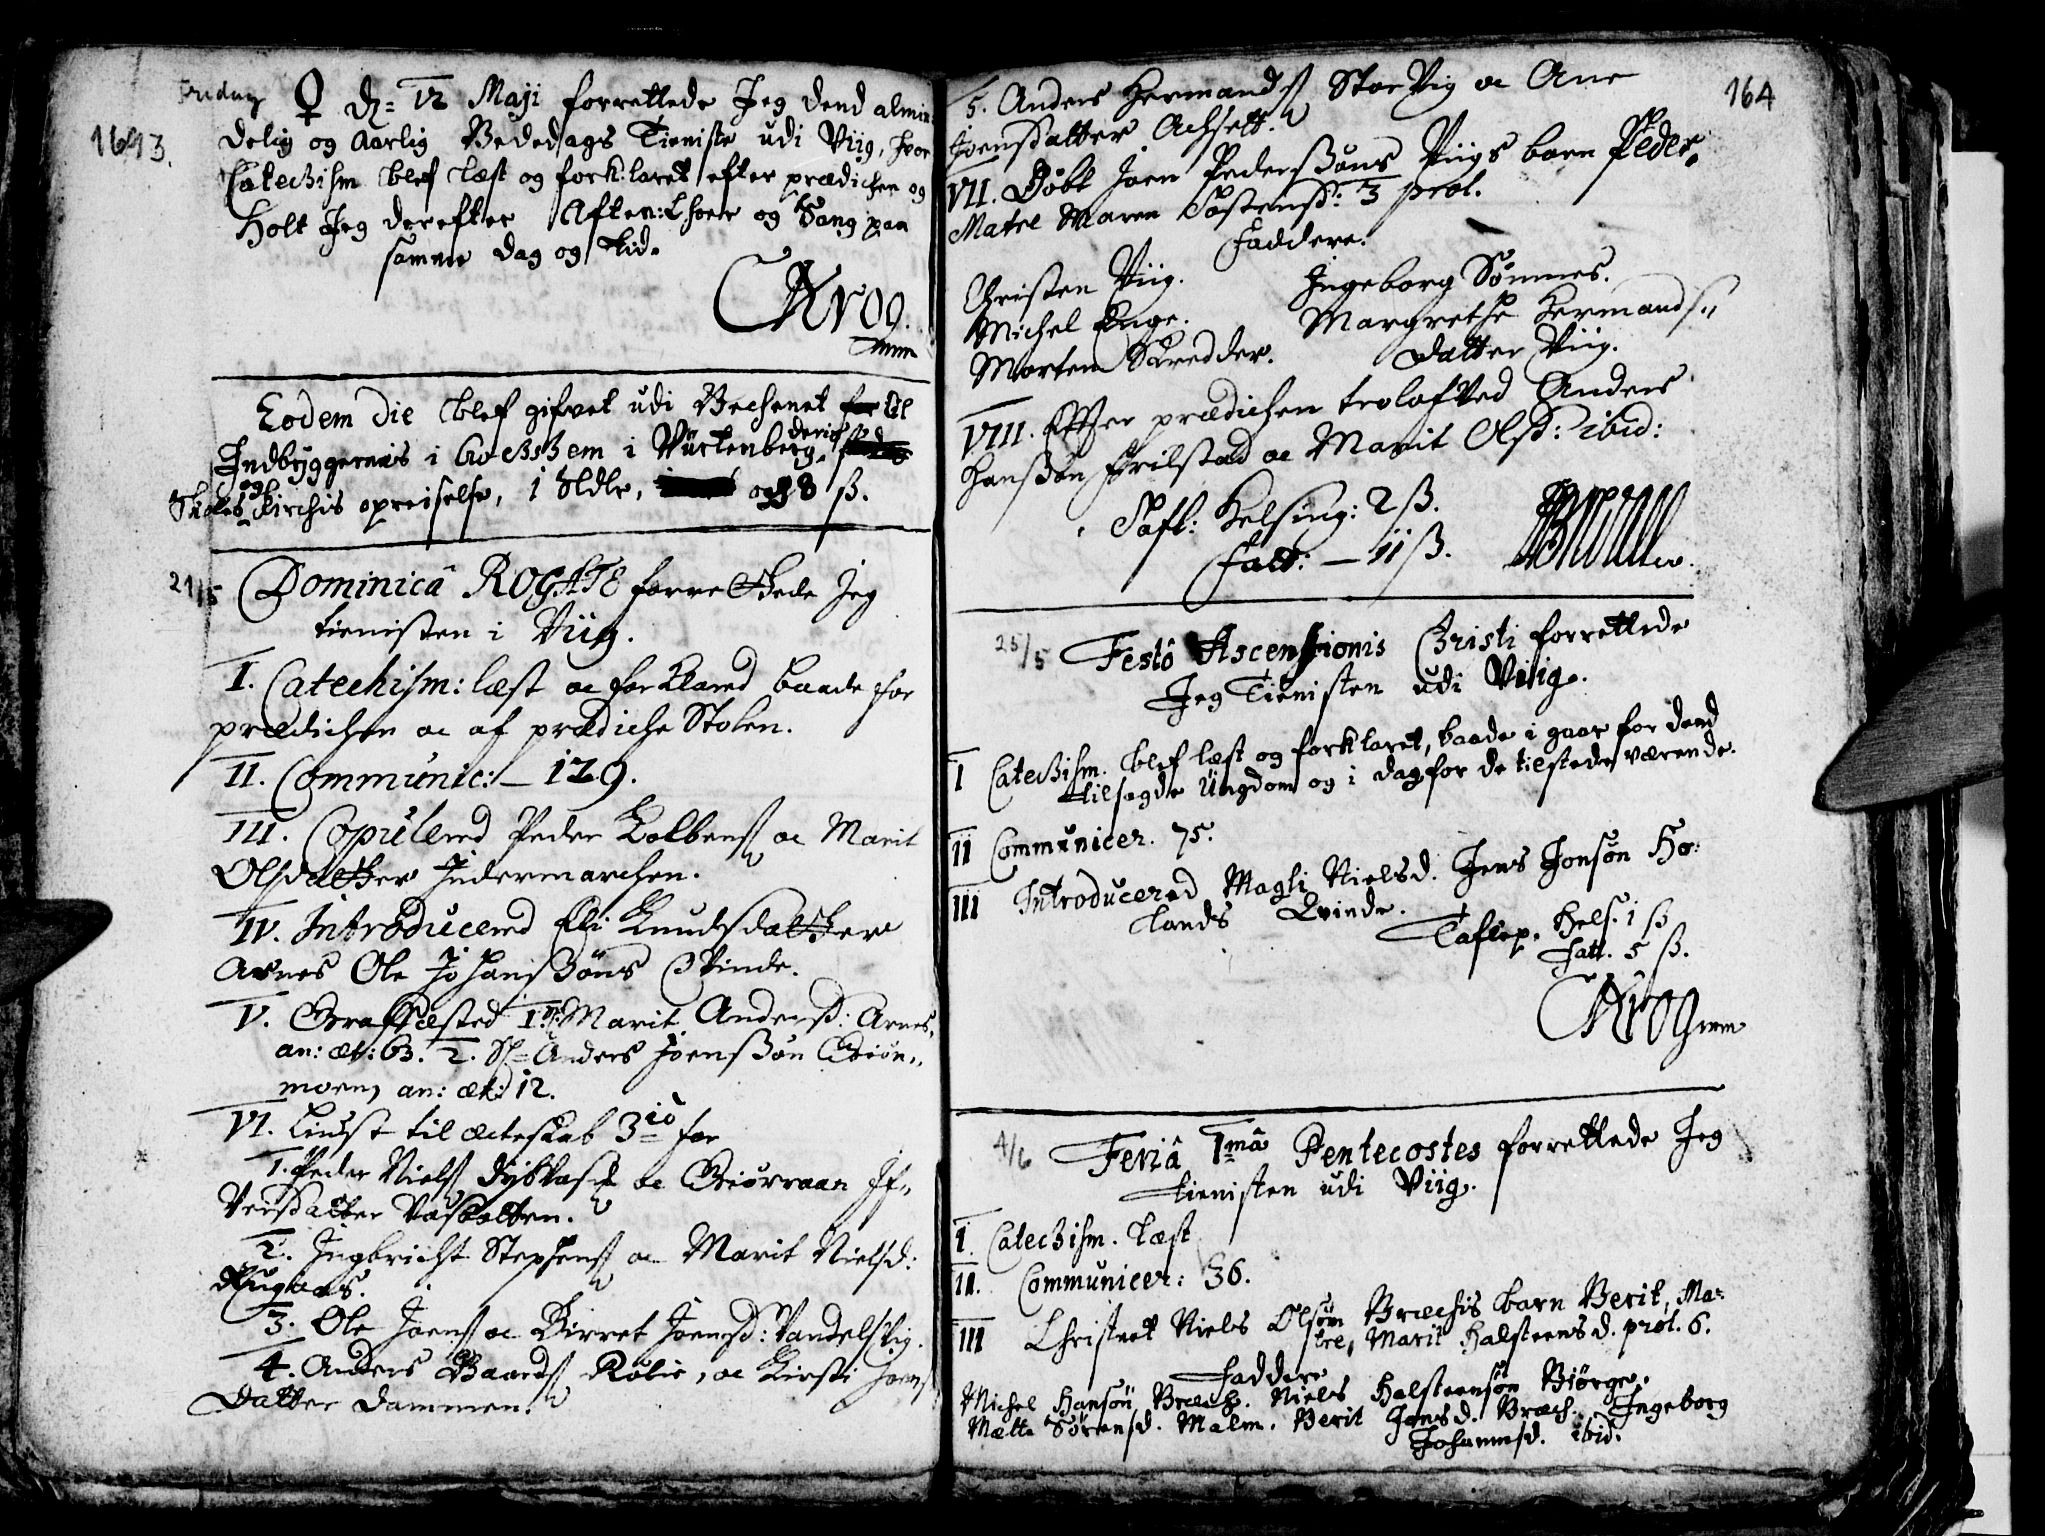 Fredag ♀ D: 12 Maji forrettede Jeg dend almin:
1693.
delig og Aarlig Bededags Tieniste udi Viig, hvor
Catechism blef læst og forklaret efter prædichen og
Holt Jeg derefter Aften: Choer og Sang paa
samme dag og tid.
CKrog.
mm
Eodem die blef gifvet udi Bechenet for til
Indbyggernis i Bochssem i Würtenberg, deris
Skoles og Kirchis opreiselse, 1 Rdlr, og 8 ß.
21/5 Dominicâ ROGATE forrettede Jeg
tienisten i Viig.
I. Catechism: læst oc forklared baade for
prædichen oc af prædiche Stolen.
II. Communic: – 129.
III. Copulered Peder Kolbens oc Marit
Olsdatter Indermarchen.
IV. Introducered Eli Knudsdatter
Arnes Ole Johanßöns Qvinde.
V. Graffæsted 1. Marit Andersd: Arnes.
an: æt: 63. 2. Sl= Anders Joenßön
moen, an: æt: 12.
VI. Liust til ächteskab 3io for
1. Peder Niels oc Giörraan
Versdatter
2. Ingbricht Stephens oc Marit Nielsd:
3. Ole Joens oc Birret Joensd: Vandelsvig.
4. Anders Baards Rolie, oc Kirsti Joens
Datter Dammen.
164
5. Anders Hermands StorVig oc Ane
Joensdatter Achsett.
VII. Döbt Joen Pedersßöns Viigs barn Peder,
Matre Maren Tostensd: 3 prol.
Faddere.
Christen Viig. Ingeborg Sömnes.
Michel Enge. Margrethe Hermands
Morten Skredder. datter Viig.
VIII. Efter prædichen trolofved Anders
Hanßön Frilstad oc Marit Olsd: ibid:
Tafl: Helsing: 2 ß.
Fatt: – 11 ß.
25/5 Festô Ascensionis Christi forrettede
Jeg Tienisten udi Viig.
I Catechism. blef læst og forklaret, baade i gaar for dend
tilsagde Ungdom og i dag for de tilstede værende.
II Communicer. 75.
III Introducered Magli Nielsd. Jens Jonsön Ho:
lands Qvinde.
Taflep. Hels. 1 ß
Fatt. 5 ß.
CKrog mm
4/6 Feriâ 1mâ Pentecostes forrettede Jeg
tienisten udi Viig.
I. Catechism. læst
II. Communicer: 36.
III Christnet Niels Olsön Bræchis barn Berit, Ma:
tre, Marit Halsteensd. prol. 6.
Faddere
Michel Hansön Bræch. Niels Halsteensön Biörge.
Mætte Sörensd. Malm. Berit Jonsd. Bræch. Ingeborg
Johannsd. ibid.